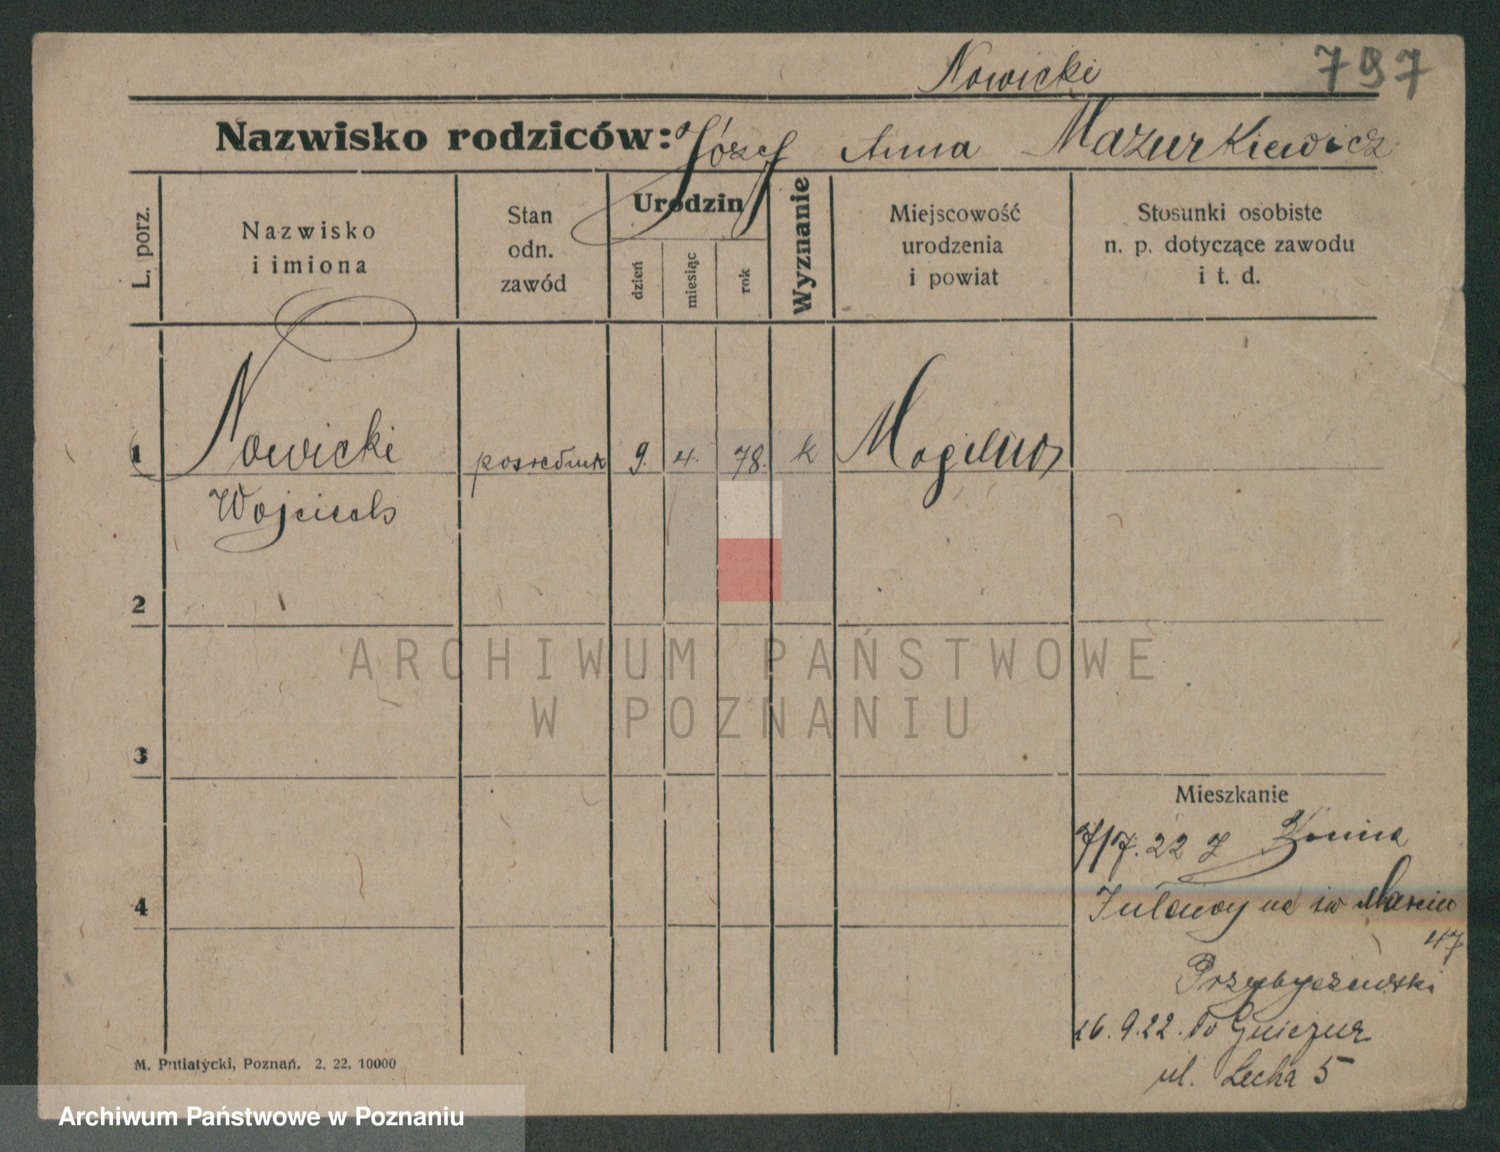 Nowicki 797
Nazwisko rodziców: Józef Anna Mazurkiewicz
L. porz.
Nazwisko
i imiona
Stan
odn.
zawód
Urodzin
dzień
miesiąc
rok
Wyznanie
Miejscowość
urodzenia
i powiat
Stosunki osobiste
n. p. dotyczące zawodu
i t. d.
1 Nowicki pośrednik 9. 4. 78. k Mogilno
Wojciech
2
3
4
Mieszkanie
7/7. 22 z
na św Marcin
47
Przybyszewski
26. 9. 22. do Gniezna
ul. Lecha 5
M. Putiatycki, Poznań. 2. 22. 10000
ARCHIWUM PAŃSTWOWE
W POZNANIU
Archiwum Państwowe w Poznaniu